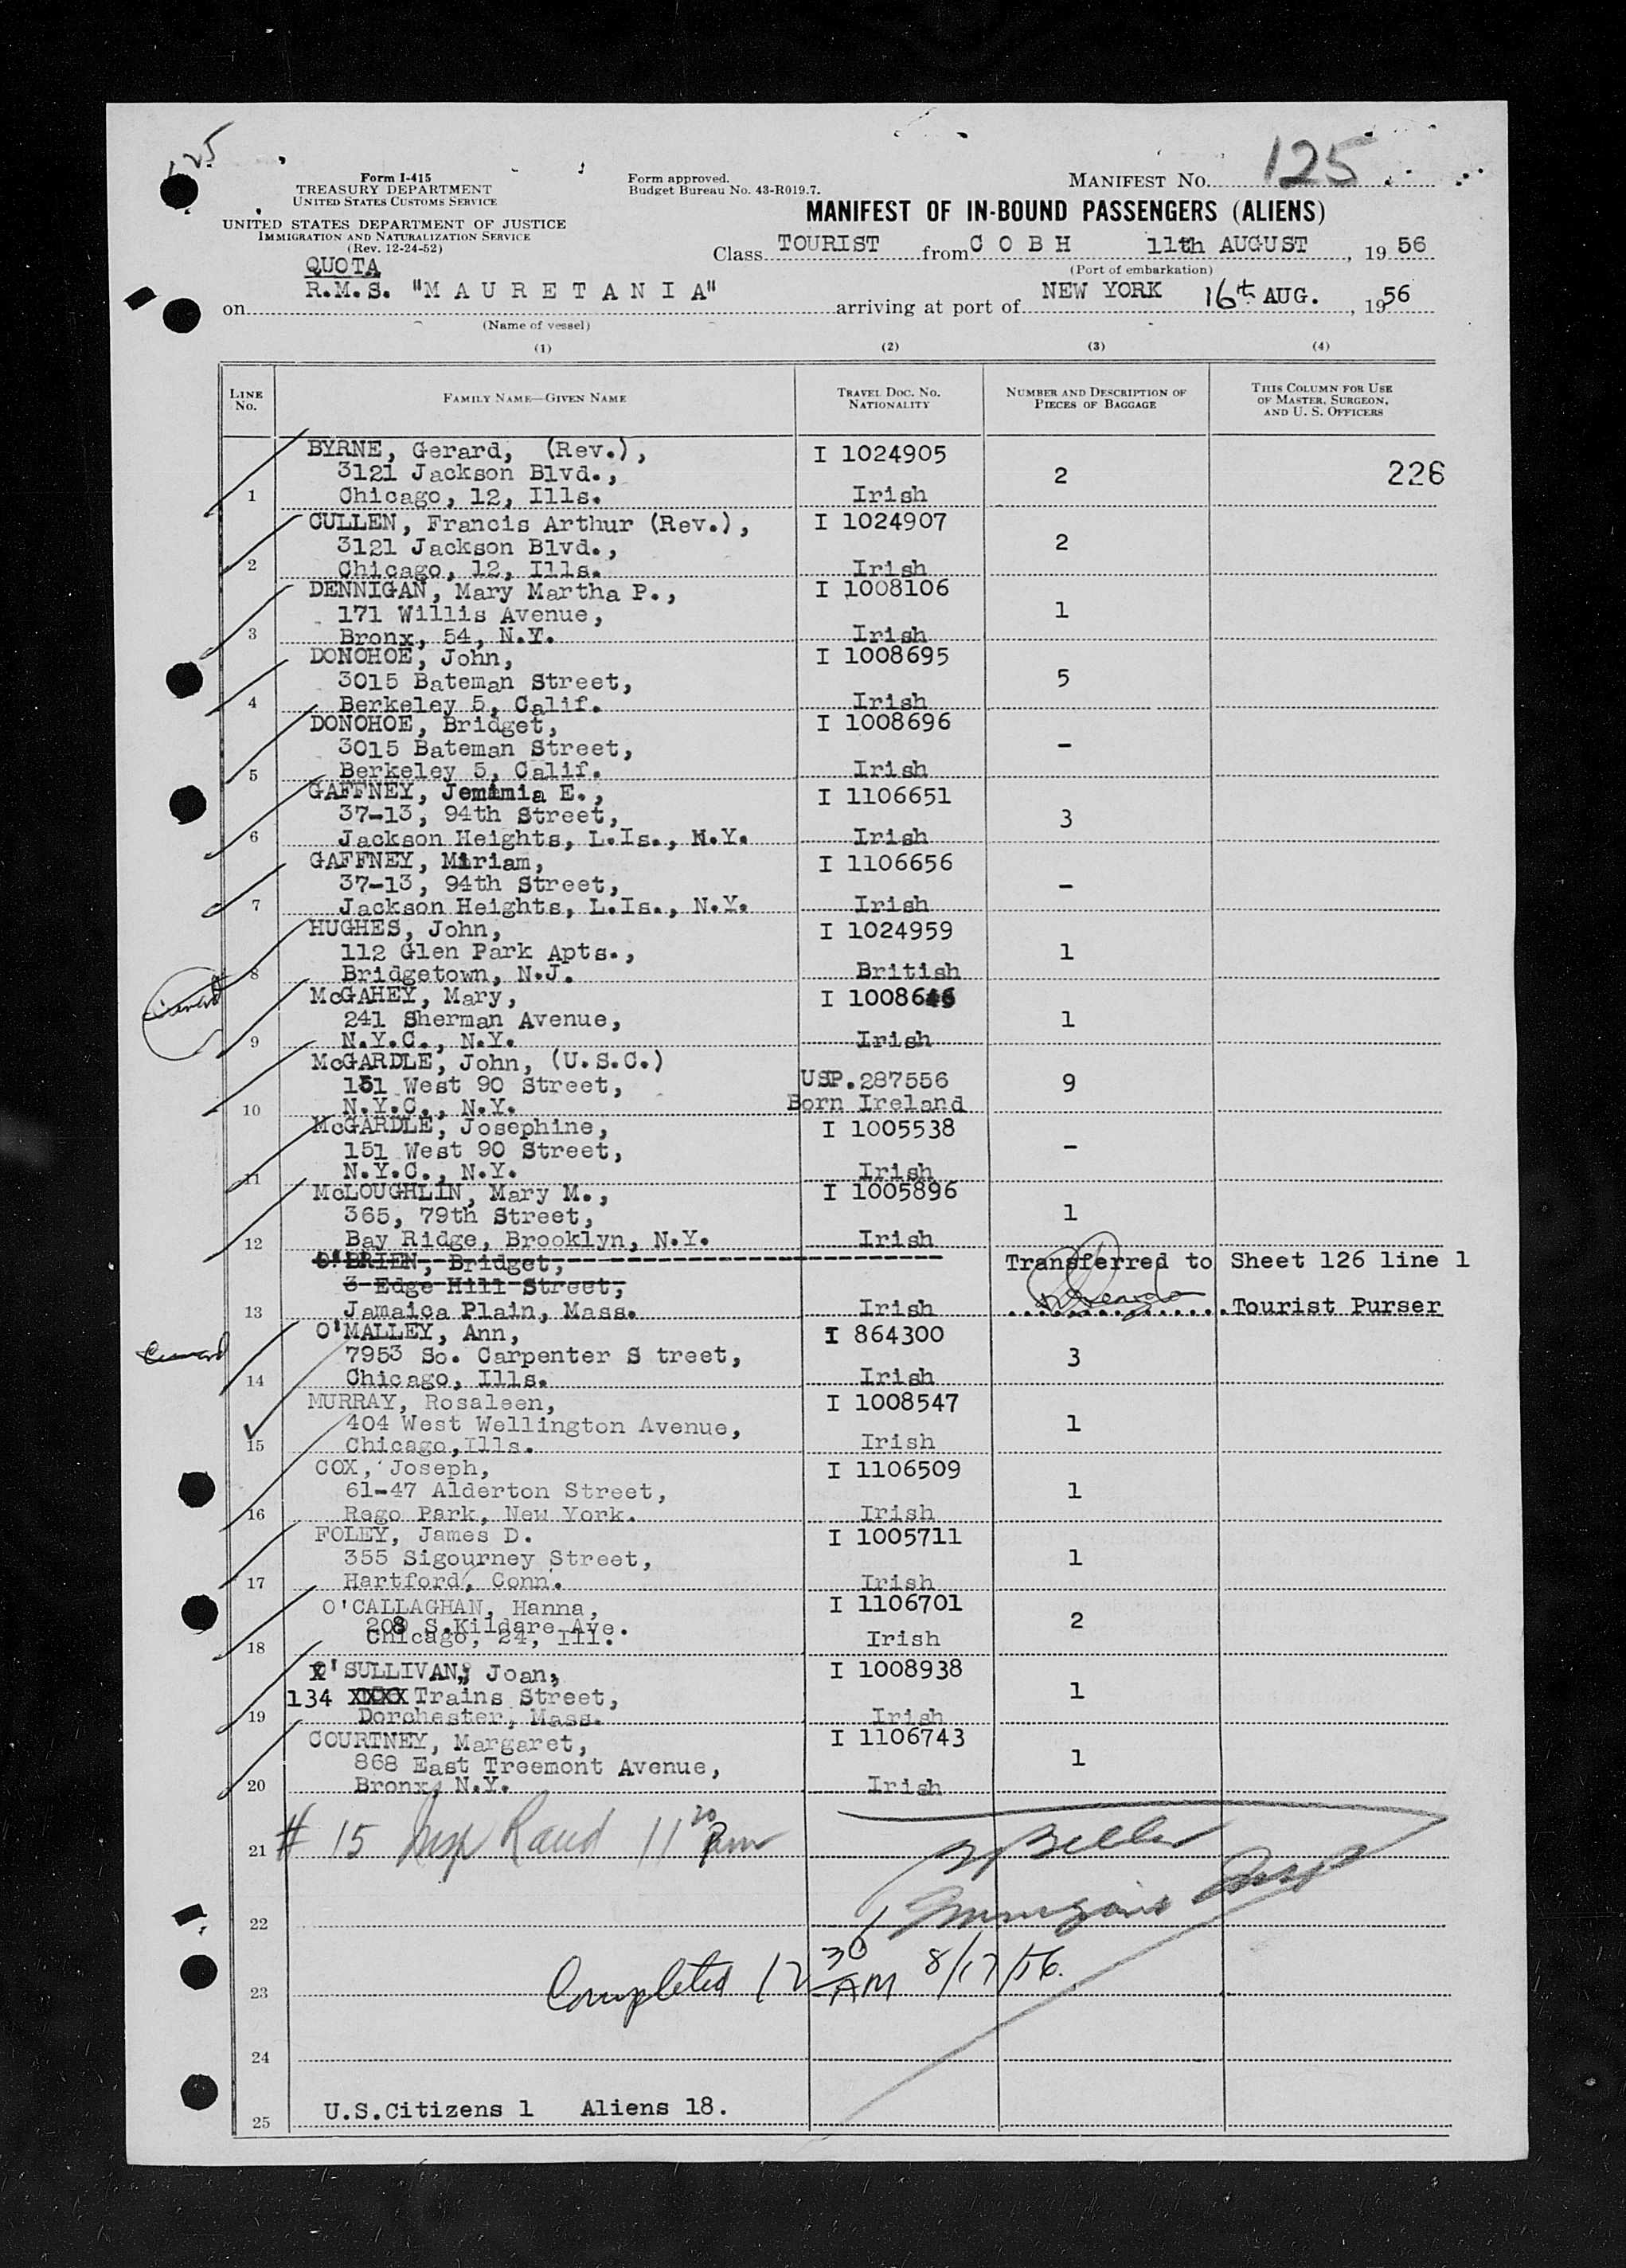 125
Form I-415
TREASURY DEPARTMENT
UNITED STATES CUSTOMS SERVICE
UNITED STATES DEPARTMENT OF JUSTICE
IMMIGRATION AND NATURALIZATION SERVICE
(Rev. 12-24-52)
Form approved.
Budget Bureau No. 43-R019.7.
MANIFEST NO. 125
MANIFEST OF IN-BOUND PASSENGERS (ALIENS)
Class TOURIST from C O B H 11th AUGUST, 19 56
(Port of embarkation)
QUOTA
on R.M.S. "M A U R E T A N I A" arriving at port of NEW YORK 16th AUG., 1956
(Name of vessel)
(1) (2) (3) (4)
LINE No. FAMILY NAME—GIVEN NAME TRAVEL DOC. NO. NATIONALITY NUMBER AND DESCRIPTION OF PIECES OF BAGGAGE THIS COLUMN FOR USE OF MASTER, SURGEON, AND U. S. OFFICERS
BYRNE, Gerard, (Rev.), I 1024905
3121 Jackson Blvd., 2 226
1 Chicago, 12, Ills. Irish
CULLEN, Francis Arthur (Rev.), I 1024907
3121 Jackson Blvd., 2
2 Chicago, 12, Ills. Irish
DENNIGAN, Mary Martha P., I 1008106
171 Willis Avenue, 1
3 Bronx, 54, N.Y. Irish
DONOHOE, John, I 1008695
3015 Bateman Street, 5
4 Berkeley 5, Calif. Irish
DONOHOE, Bridget, I 1008696
3015 Bateman Street, -
5 Berkeley 5, Calif. Irish
GAFFNEY, Jemimia E., I 1106651
37-13, 94th Street, 3
6 Jackson Heights, L.Is., N.Y. Irish
GAFFNEY, Miriam, I 1106656
37-13, 94th Street, -
7 Jackson Heights, L.Is., N.Y. Irish
HUGHES, John, I 1024959
112 Glen Park Apts., 1
8 Bridgetown, N.J. British
McGAHEY, Mary,
241 Sherman Avenue, 1
9 N.Y.C., N.Y. Irish
McGARDLE, John, (U.S.C.)
151 West 90 Street, USP.287556 9
10 N.Y.C., N.Y. Born Ireland
McGARDLE, Josephine, I 1005538
151 West 90 Street, -
11 N.Y.C., N.Y. Irish
McLOUGHLIN, Mary M., I 1005896
365, 79th Street, 1
12 Bay Ridge, Brooklyn, N.Y. Irish
O'BRIEN, Bridget, Transferred to Sheet 126 line 1
3 Edge Hill Street,
13 Jamaica Plain, Mass. Irish Tourist Purser
O'MALLEY, Ann, I 864300
7953 So. Carpenter S treet, 3
14 Chicago, Ills. Irish
MURRAY, Rosaleen, I 1008547
404 West Wellington Avenue, 1
15 Chicago,Ills. Irish
COX, Joseph, I 1106509
61-47 Alderton Street, 1
16 Rego Park, New York. Irish
FOLEY, James D. I 1005711
355 Sigourney Street, 1
17 Hartford, Conn. Irish
O'CALLAGHAN, Hanna, I 1106701
208 S.Kildare Ave. 2
18 Chicago, 24, Ill. Irish
O'SULLIVAN, Joan, I 1008938
134 XXXX Trains Street, 1
19 Dorchester, Mass. Irish
COURTNEY, Margaret, I 1106743
868 East Treemont Avenue, 1
20 Bronx, N.Y. Irish
21 # 15 Insp Rand 11 20 pm
22 Immigrant Insp
23 Completed 12 30 AM 8/17/56.
24
25 U.S.Citizens 1 Aliens 18.